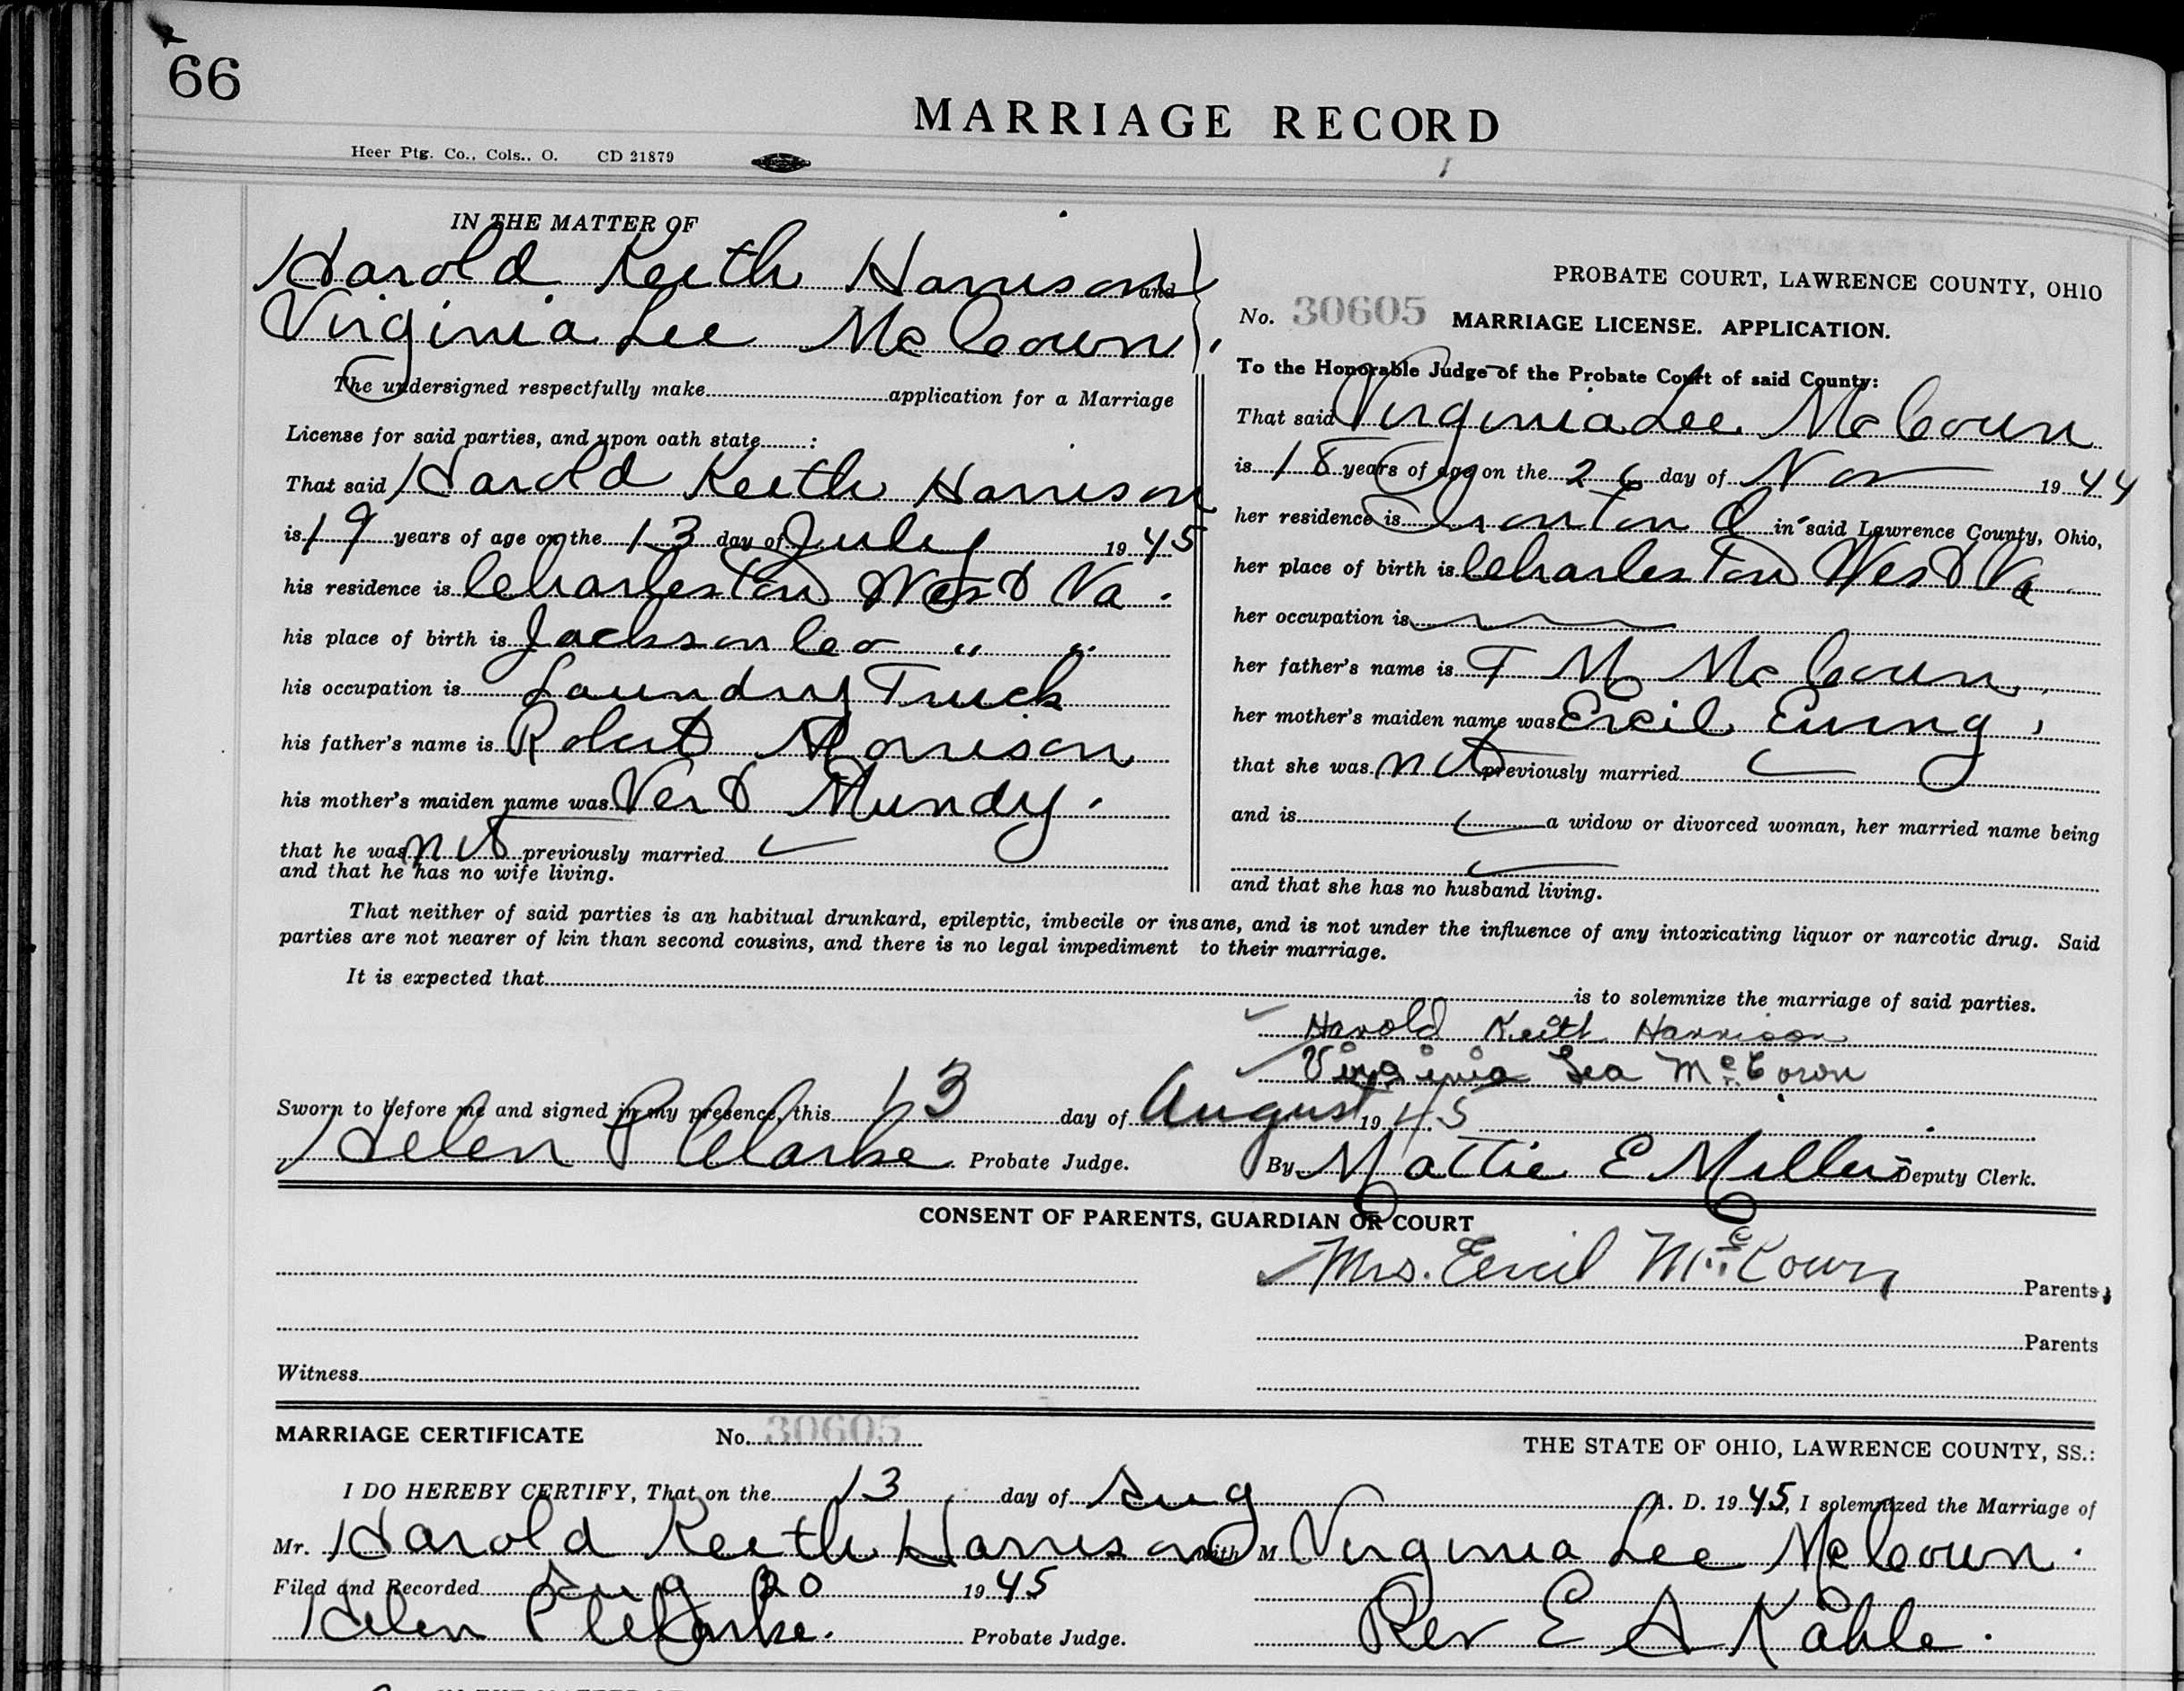 66
MARRIAGE RECORD
Heer Ptg. Co., Cols., O. CD 21879
IN THE MATTER OF
Harold Keith Harrison and
Virginia Lee McCown
The undersigned respectfully make application for a Marriage
License for said parties, and upon oath state :
That said Harold Keith Harrison
is 19 years of age on the 13 day of July 1945
his residence is Charleston West Va.
his place of birth is Jackson Co " "
his occupation is Laundry Truck
his father's name is Robert Morrison
his mother's maiden name was Mundy.
that he was not previously married
and that he has no wife living.
PROBATE COURT, LAWRENCE COUNTY, OHIO
No. 30605 MARRIAGE LICENSE. APPLICATION.
To the Honorable Judge of the Probate Court of said County:
That said Virginia Lee McCown
is 18 years of age on the 26 day of Nov 1944
her residence is Ironton O in said Lawrence County, Ohio,
her place of birth is Charleston West Va
her occupation is
her father's name is T M McCown
her mother's maiden name was Ercil Ewing
that she was not previously married
and is a widow or divorced woman, her married name being
and that she has no husband living.
That neither of said parties is an habitual drunkard, epileptic, imbecile or insane, and is not under the influence of any intoxicating liquor or narcotic drug. Said
parties are not nearer of kin than second cousins, and there is no legal impediment to their marriage.
It is expected that is to solemnize the marriage of said parties.
Harold Keith Harrison
Virginia Lea McCown
Sworn to before me and signed in my presence, this 13 day of August 1945
Helen P Clarke Probate Judge. By Mattie E Miller Deputy Clerk.
CONSENT OF PARENTS, GUARDIAN OR COURT
Mrs. Ercil McCown Parents
Parents
Witness
MARRIAGE CERTIFICATE No. 30605 THE STATE OF OHIO, LAWRENCE COUNTY, SS.:
I DO HEREBY CERTIFY, That on the 13 day of Aug A. D. 1945, I solemnized the Marriage of
Mr. Harold Keith Harrison with M Virginia Lee McCown.
Filed and Recorded Aug 20 1945
Helen P Clarke. Probate Judge. Rev E A Kahle.